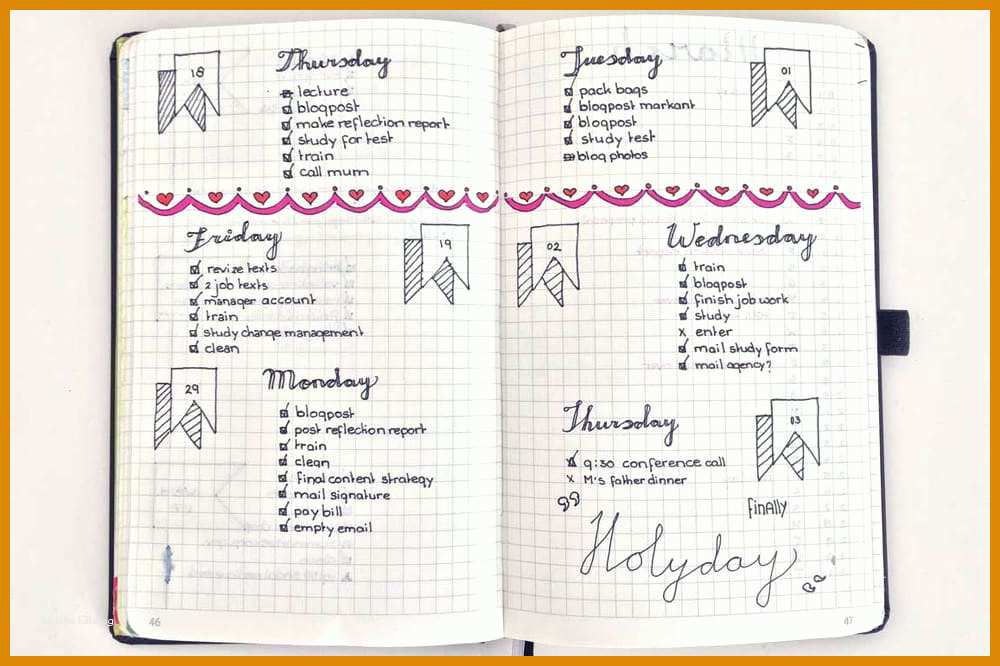 Thursday
18
lecture
blogpost
make reflection report
study for test
train
call mum
Friday
19
revize texts
2 job texts
manager account
train
study change management
clean
29
Monday
blogpost
post reflection report
train
clean
final content strategy
mail signature
pay bill
empty email
46
Tuesday
01
pack bags
blogpost markant
blogpost
study test
blog photos
02
Wednesday
train
blogpost
finish job work
study
x enter
mail study form
mail agency?
Thursday
03
9:30 conference call
x M's father dinner
Finally
Holyday
47